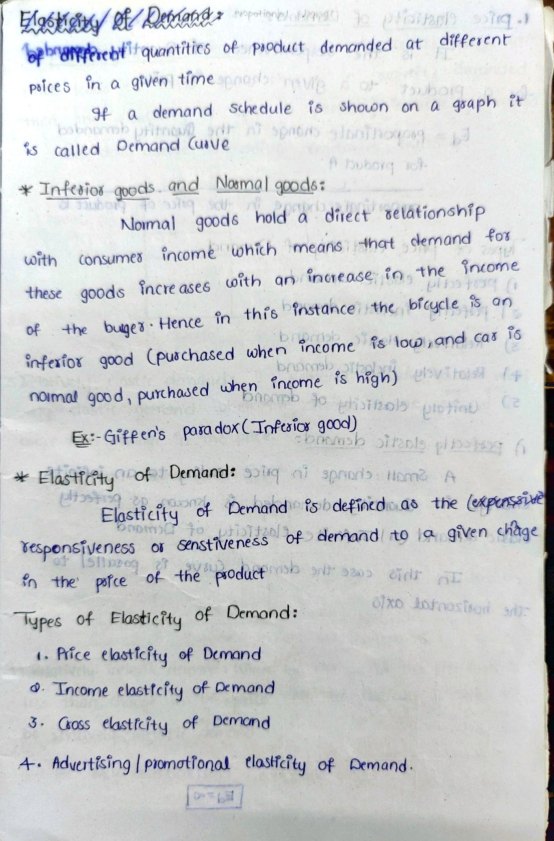 Elasticity of Demand:
of different quantities of product demanded at different
prices in a given time
If a demand schedule is shown on a graph it
is called Demand Curve
* Inferior goods and Normal goods:
Normal goods hold a direct relationship
with consumer income which means that demand for
these goods increases with an increase in the income
of the buger. Hence in this instance the bicycle is an
inferior good (purchased when income is low and car is
normal good, purchased when income is high)
Ex:- Giffen's paradox (Inferior good)
* Elasticity of Demand:
Elasticity of Demand is defined as the (expenssive
responsiveness or senstiveness of demand to a given chage
in the price of the product
Types of Elasticity of Demand:
1. Price elasticity of Demand
2. Income elasticity of Demand
3. Cross elasticity of Demand
4. Advertising / promotional elasticity of Demand.